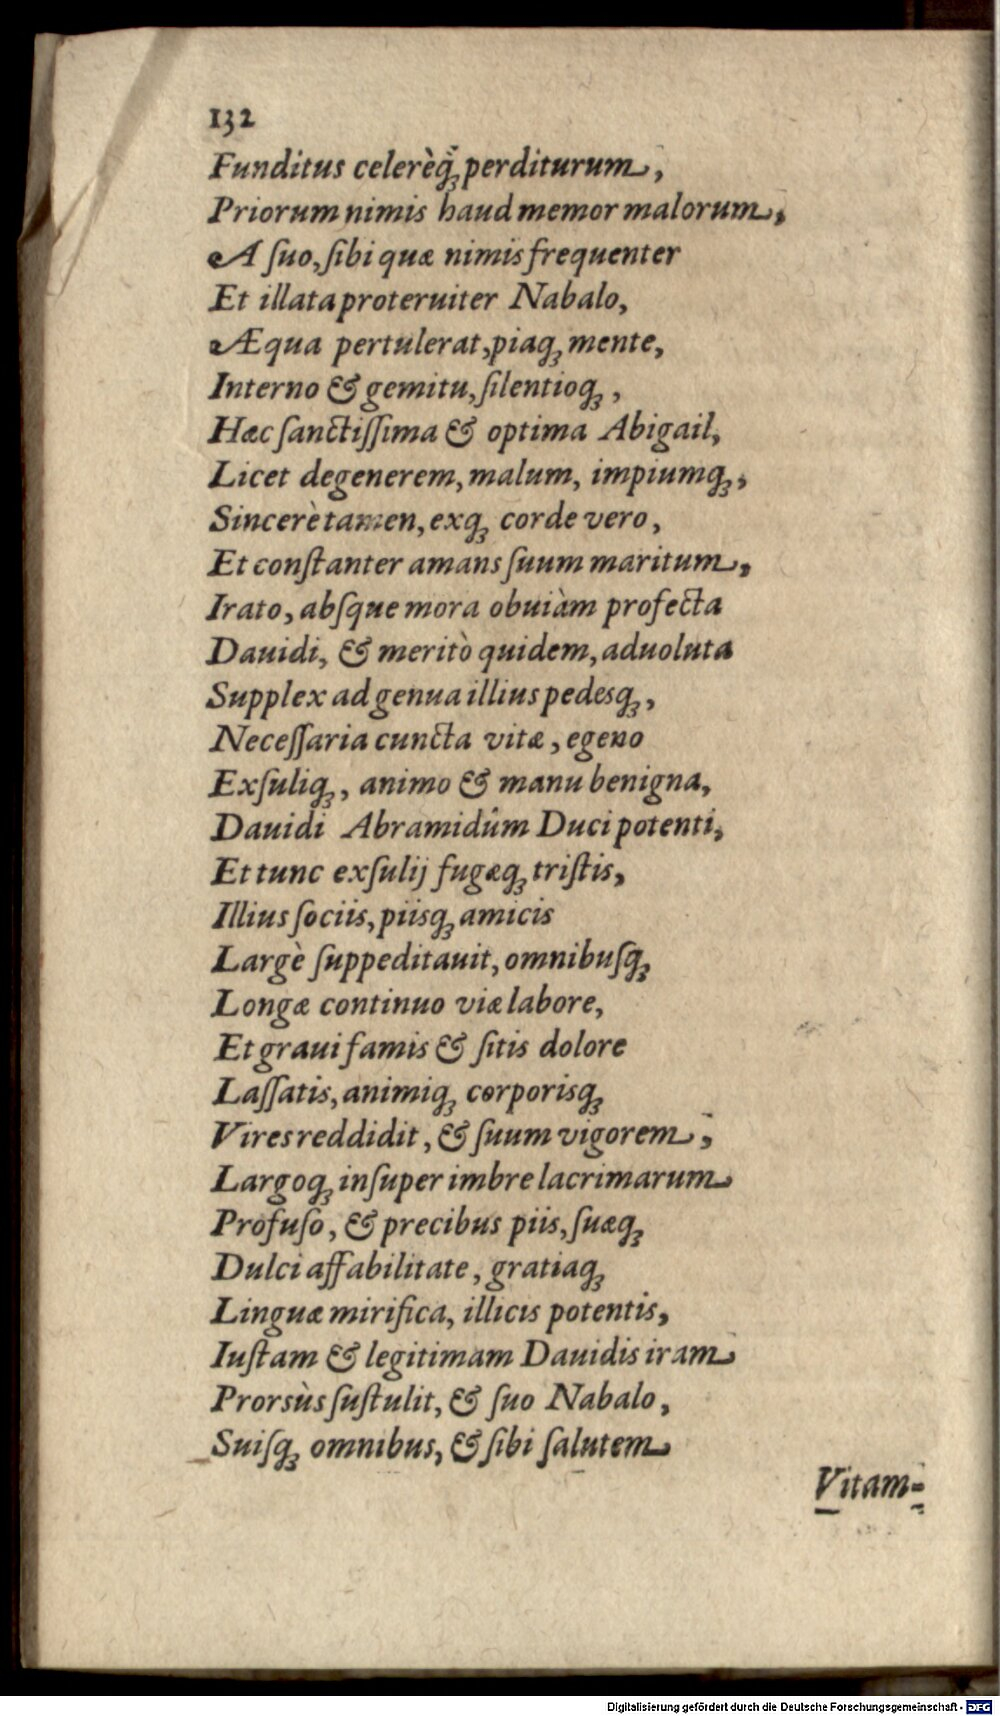 132
Funditus celerèq́ꝫ perditurum,
Priorum nimis haud memor malorum,
A ſuo, ſibi quæ nimis frequenter
Et illata proteruiter Nabalo,
Æqua pertulerat, piaqꝫ mente,
Interno & gemitu, ſilentioqꝫ,
Hæc ſanctiſſima & optima Abigail,
Licet degenerem, malum, impiumqꝫ,
Sincerè tamen, exqꝫ corde vero,
Et conſtanter amans ſuum maritum,
Irato, abſque mora obuiàm profecta
Dauidi, & meritò quidem, aduoluta
Supplex ad genua illius pedesqꝫ,
Neceſſaria cuncta vitæ, egeno
Exſuliqꝫ, animo & manu benigna,
Dauidi Abramidûm Duci potenti,
Et tunc exſulij fugæqꝫ triſtis,
Illius ſociis, piisqꝫ amicis
Largè ſuppeditauit, omnibuſqꝫ
Longæ continuo viæ labore,
Et graui famis & ſitis dolore
Laſſatis, animiqꝫ corporisqꝫ
Vires reddidit, & ſuum vigorem,
Largoqꝫ inſuper imbre lacrimarum
Profuſo, & precibus piis, ſuæqꝫ
Dulci affabilitate, gratiaqꝫ
Linguæ mirifica, illicis potentis,
Iuſtam & legitimam Dauidis iram
Prorsùs ſuſtulit, & ſuo Nabalo,
Suiſqꝫ omnibus, & ſibi ſalutem
Vitam-
Digitalisierung gefördert durch die Deutsche Forschungsgemeinschaft - DFG